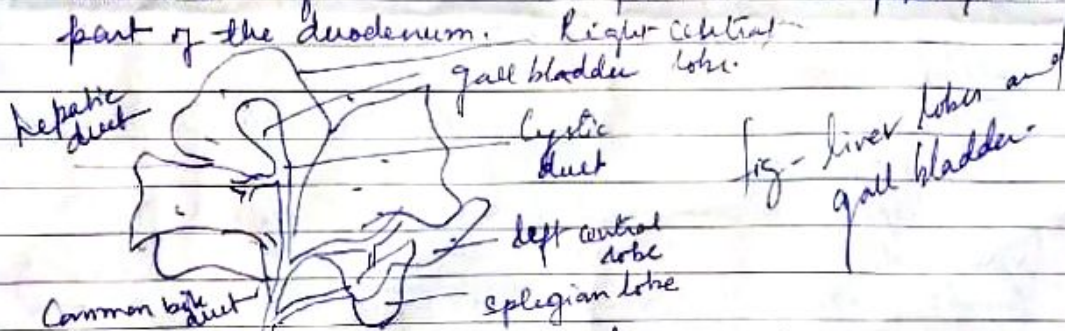 part of the duodenum.
Right central
lobe.
gall bladder
hepatic
duct
Cystic
duct
fig - liver lobes and
gall bladder.
left central
lobe
splegian lobe
Common bile
duct